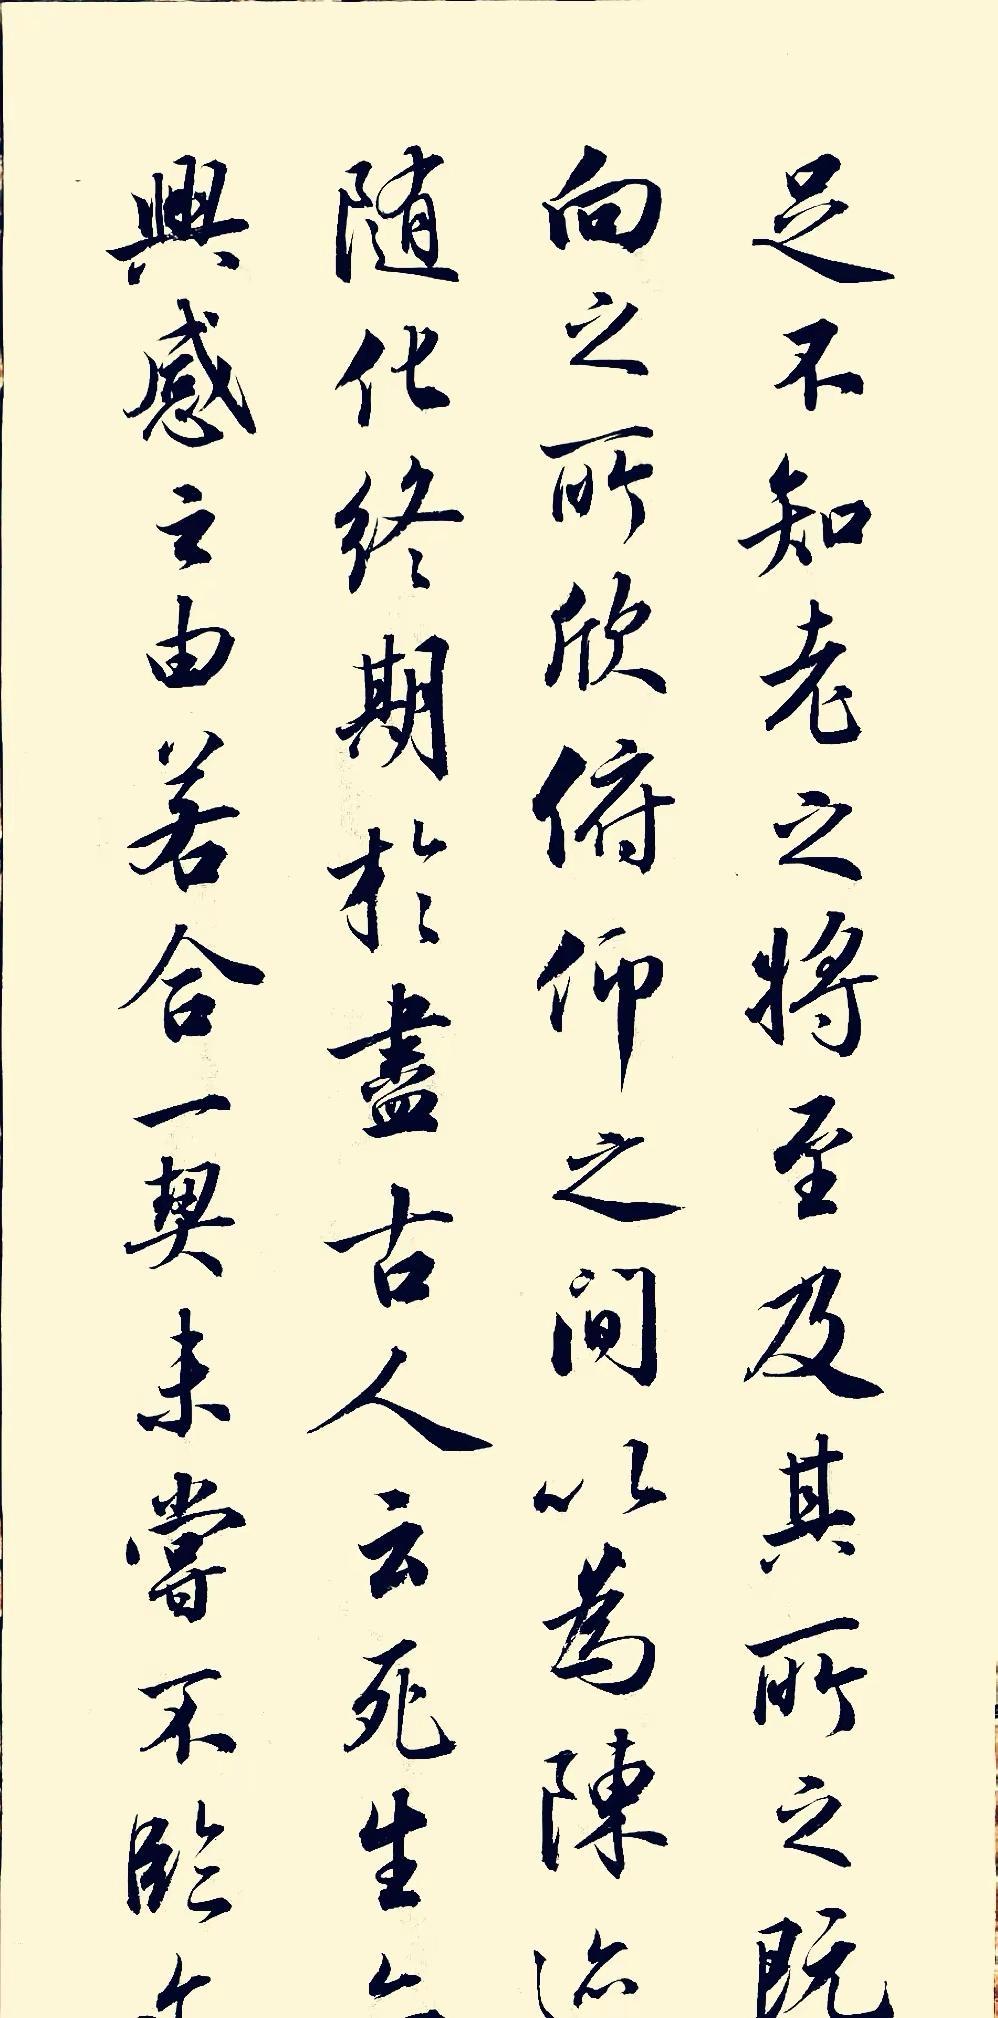 足不知老之将至及其所之既
向之所欣俯仰之间以為陳迹
随化终期於盡古人云死生
興感之由若合一契未嘗不臨